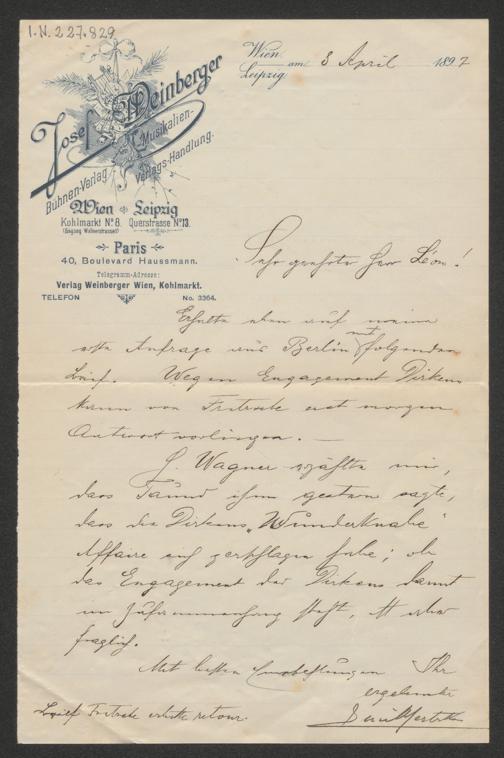 I.N. 227.829
Josef Weinberger
Musikalien-
Bühnen-Verlag Verlags-Handlung.
Wien Leipzig
Kohlmarkt No 8. Querstrasse No 13.
(Eingang Wallnerstrasse)
Paris
40, Boulevard Haussmann.
Telegramm-Adresse:
Verlag Weinberger Wien, Kohlmarkt.
TELEFON No. 3364.
Wien
Leipzig am 8 April 1897
Sehr geehrter Herr Leon!
Erhalte eben auf meine
Anfrage aus Berlin mitfolgenden
Brief. Wegen Engagement Dirkens
kann von Fritzsche erst morgen
Antwort vorliegen. —
H. Wagner erzählte mir,
dass ihm gestern sagte,
dass die Dirkens „Wunderknabe"
Affaire sich zerschlagen habe; ob
das Engagement der Dirkens damit
im Zusammenhang steht, ist aber
fraglich.
Mit besten Empfehlungen Ihr
ergebenster
Brief Fritzsche erbitte retour.